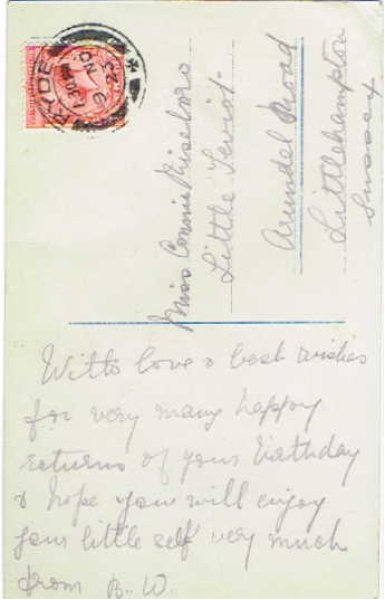 RYDE
1.30 PM
6 NO
23
Miss Connie
Little
Arundel Road
Littlehampton
Sussex
With love & best wishes
for very many happy
returns of your birthday
& hope you will enjoy
your little self very much
from B. W.